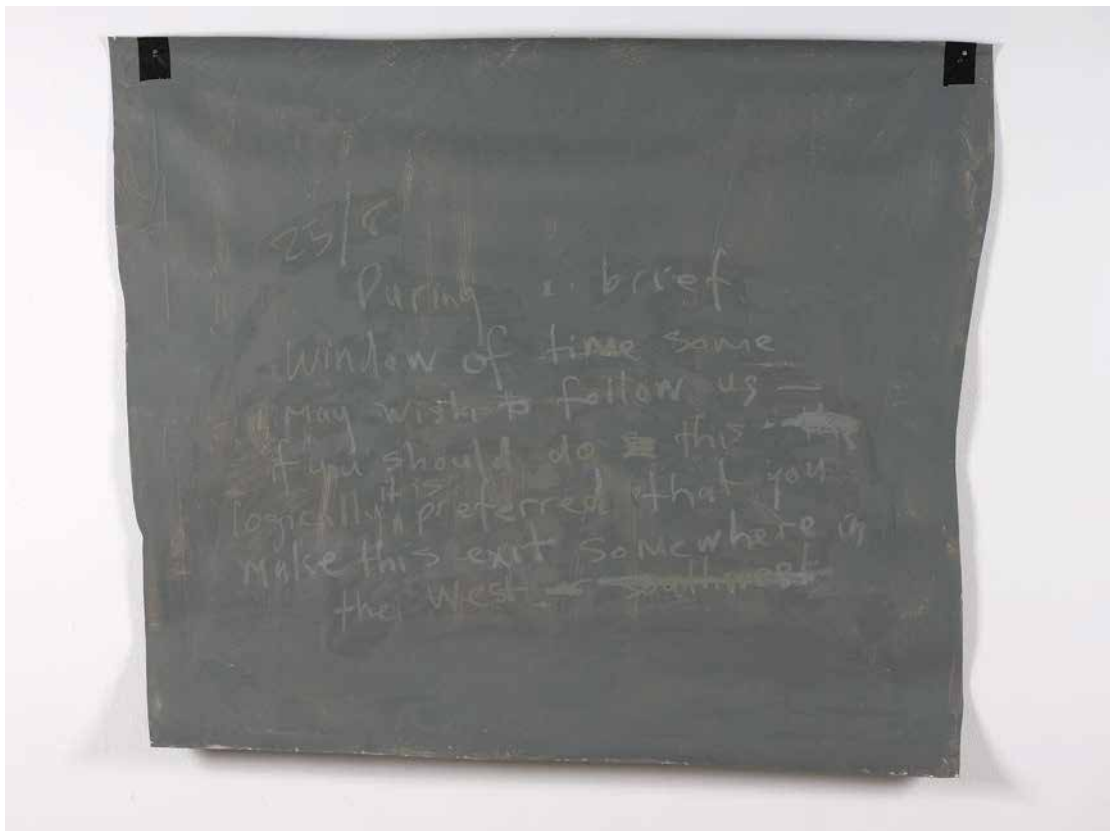 25/8
During a brief
window of time some
may wish to follow us —
if you should do this
logically it is preferred that you
make this exit somewhere in
the West southwest